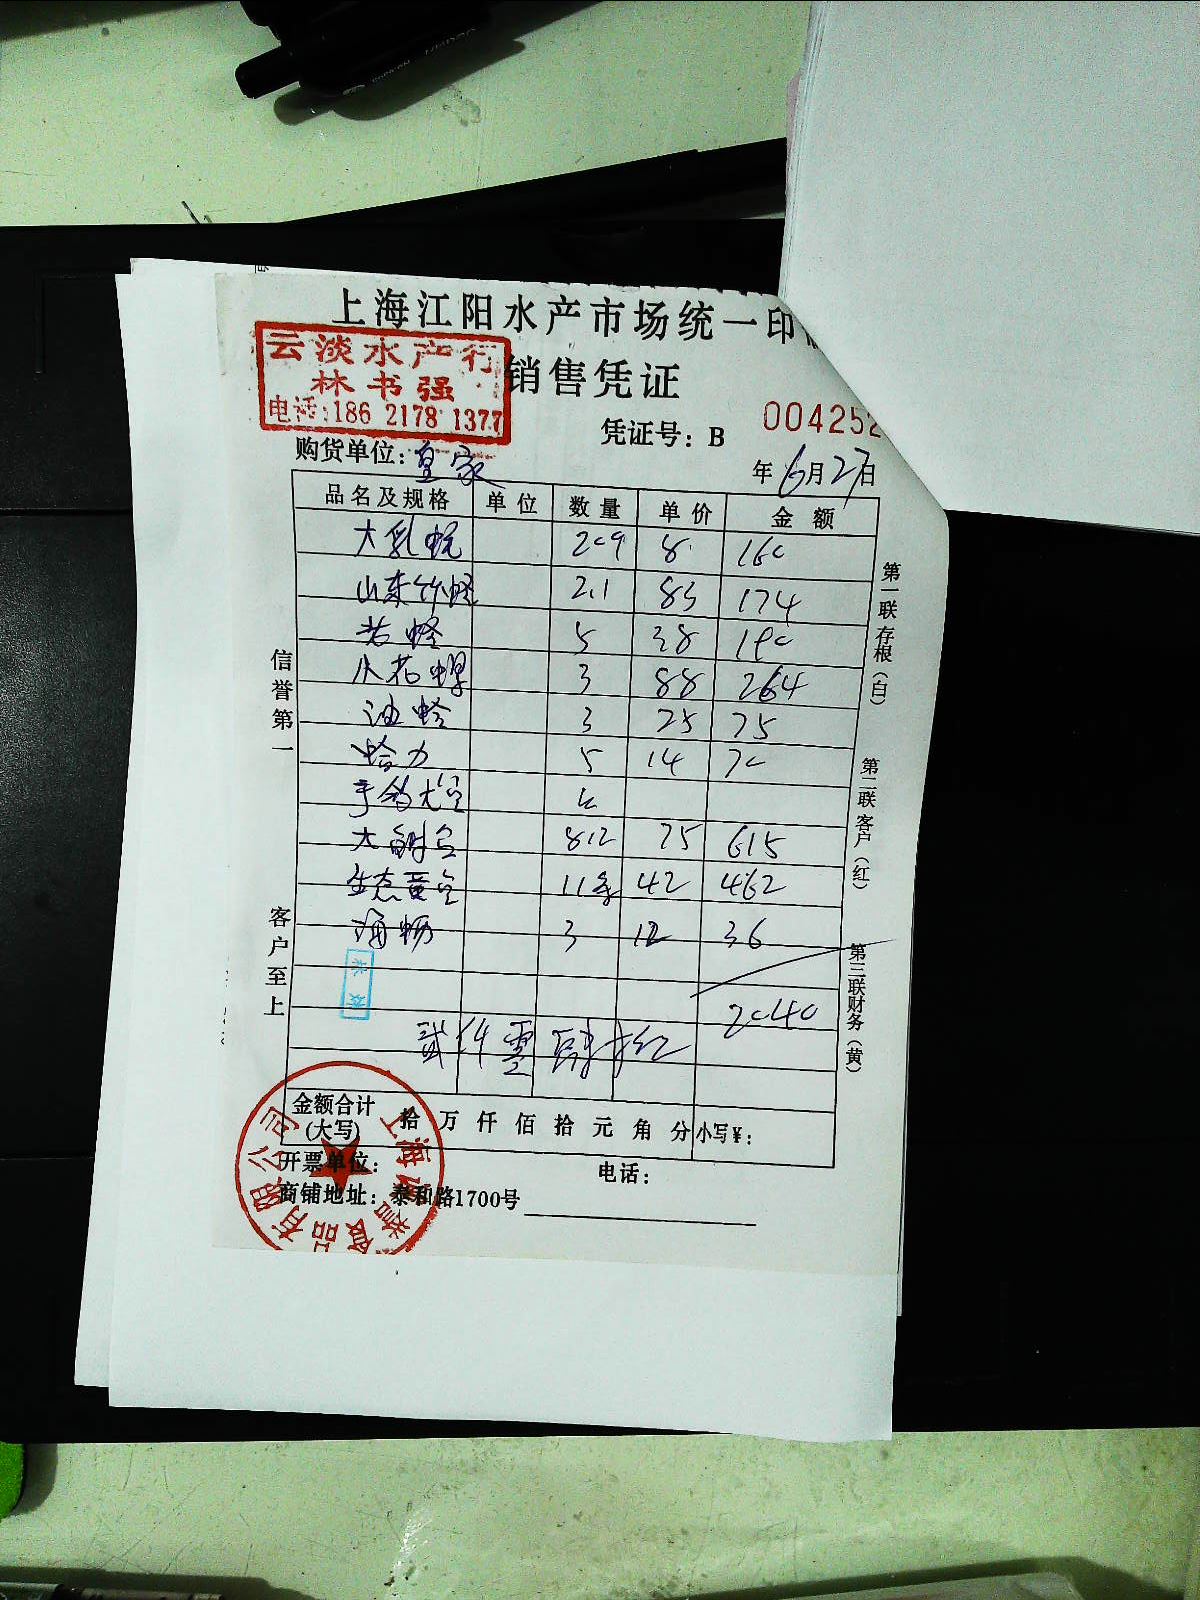 上海江阳水产市场统一印
云淡水产行
林书强
电话:186 2178 1377
销售凭证
凭证号: B 004252
购货单位: 皇家
年 6月27日
品名及规格 单位 数量 单价 金额
大乳 209 8. 160
山东竹蛏 2.1 83 174
苦蛏 5 38 190
花螺 3 88 264
油蛤 3 25 75
蛤力 5 14 70
大 8.2 75 615
生态黄 11条 42 462
海蛎 3 12 36
2040
贰仟零肆拾
金额合计
(大写) 拾 万 仟 佰 拾 元 角 分 小写¥:
开票单位: 电话:
商铺地址: 泰和路1700号
信誉第一
客户至上
第一联存根(白)
第二联客户(红)
第三联财务(黄)
上海 誉食品有限公司